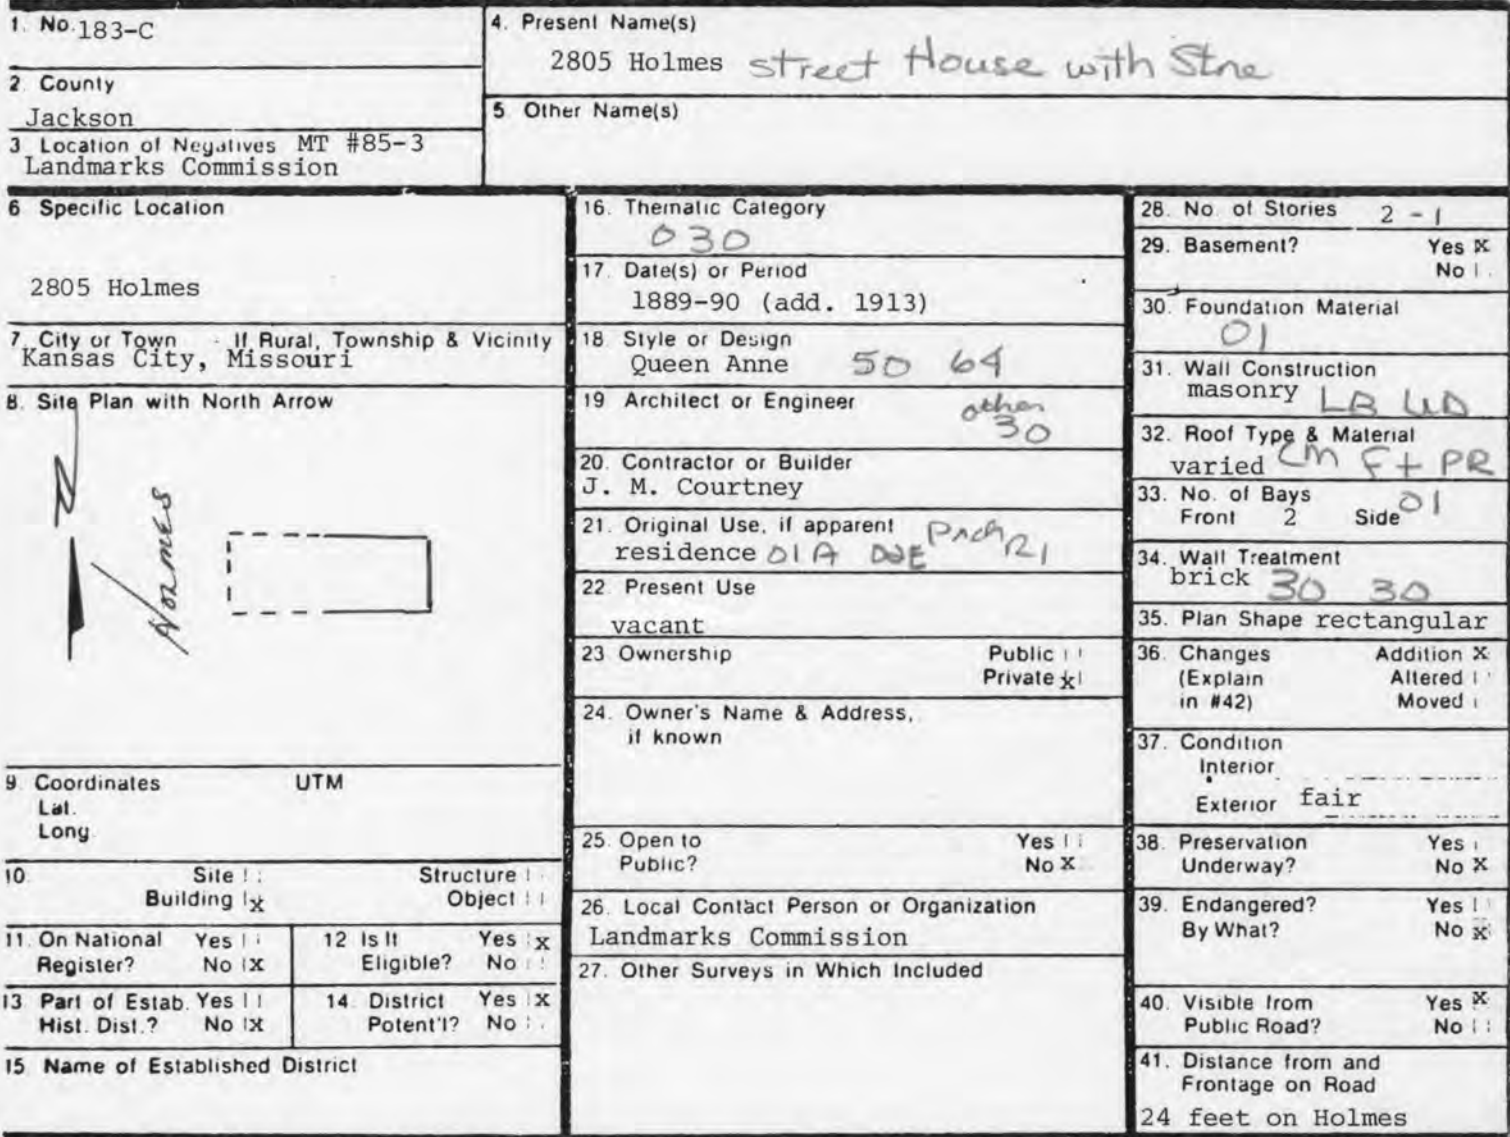 1. No. 183-C
2 County
Jackson
3 Location of Negatives MT #85-3
Landmarks Commission
4. Present Name(s)
2805 Holmes street House with Store
5 Other Name(s)
6 Specific Location
2805 Holmes
7 City or Town If Rural, Township & Vicinity
Kansas City, Missouri
8. Site Plan with North Arrow
N
Holmes
9 Coordinates UTM
Lat.
Long
10. Site Structure
Building X Object
11. On National Yes
Register? No X
12 Is It Yes X
Eligible? No
13 Part of Estab. Yes
Hist. Dist.? No X
14. District Yes X
Potent'l? No
15 Name of Established District
16. Thematic Category
030
17. Date(s) or Period
1889-90 (add. 1913)
18 Style or Design
Queen Anne 50 64
19 Architect or Engineer other
30
20. Contractor or Builder
J. M. Courtney
21. Original Use, if apparent
residence 01A
22 Present Use
vacant
23 Ownership Public
Private x
24. Owner's Name & Address,
if known
25. Open to Yes
Public? No X
26. Local Contact Person or Organization
Landmarks Commission
27. Other Surveys in Which Included
28. No. of Stories 2 - 1
29. Basement? Yes X
No
30. Foundation Material
01
31. Wall Construction
masonry LB WD
32. Roof Type & Material
varied CM Ft PR
33. No. of Bays
Front 2 Side 01
34. Wall Treatment
brick 30 30
35. Plan Shape rectangular
36. Changes Addition X
(Explain Altered
in #42) Moved
37. Condition
Interior
Exterior fair
38. Preservation Yes
Underway? No X
39. Endangered? Yes
By What? No X
40. Visible from Yes X
Public Road? No
41. Distance from and
Frontage on Road
24 feet on Holmes